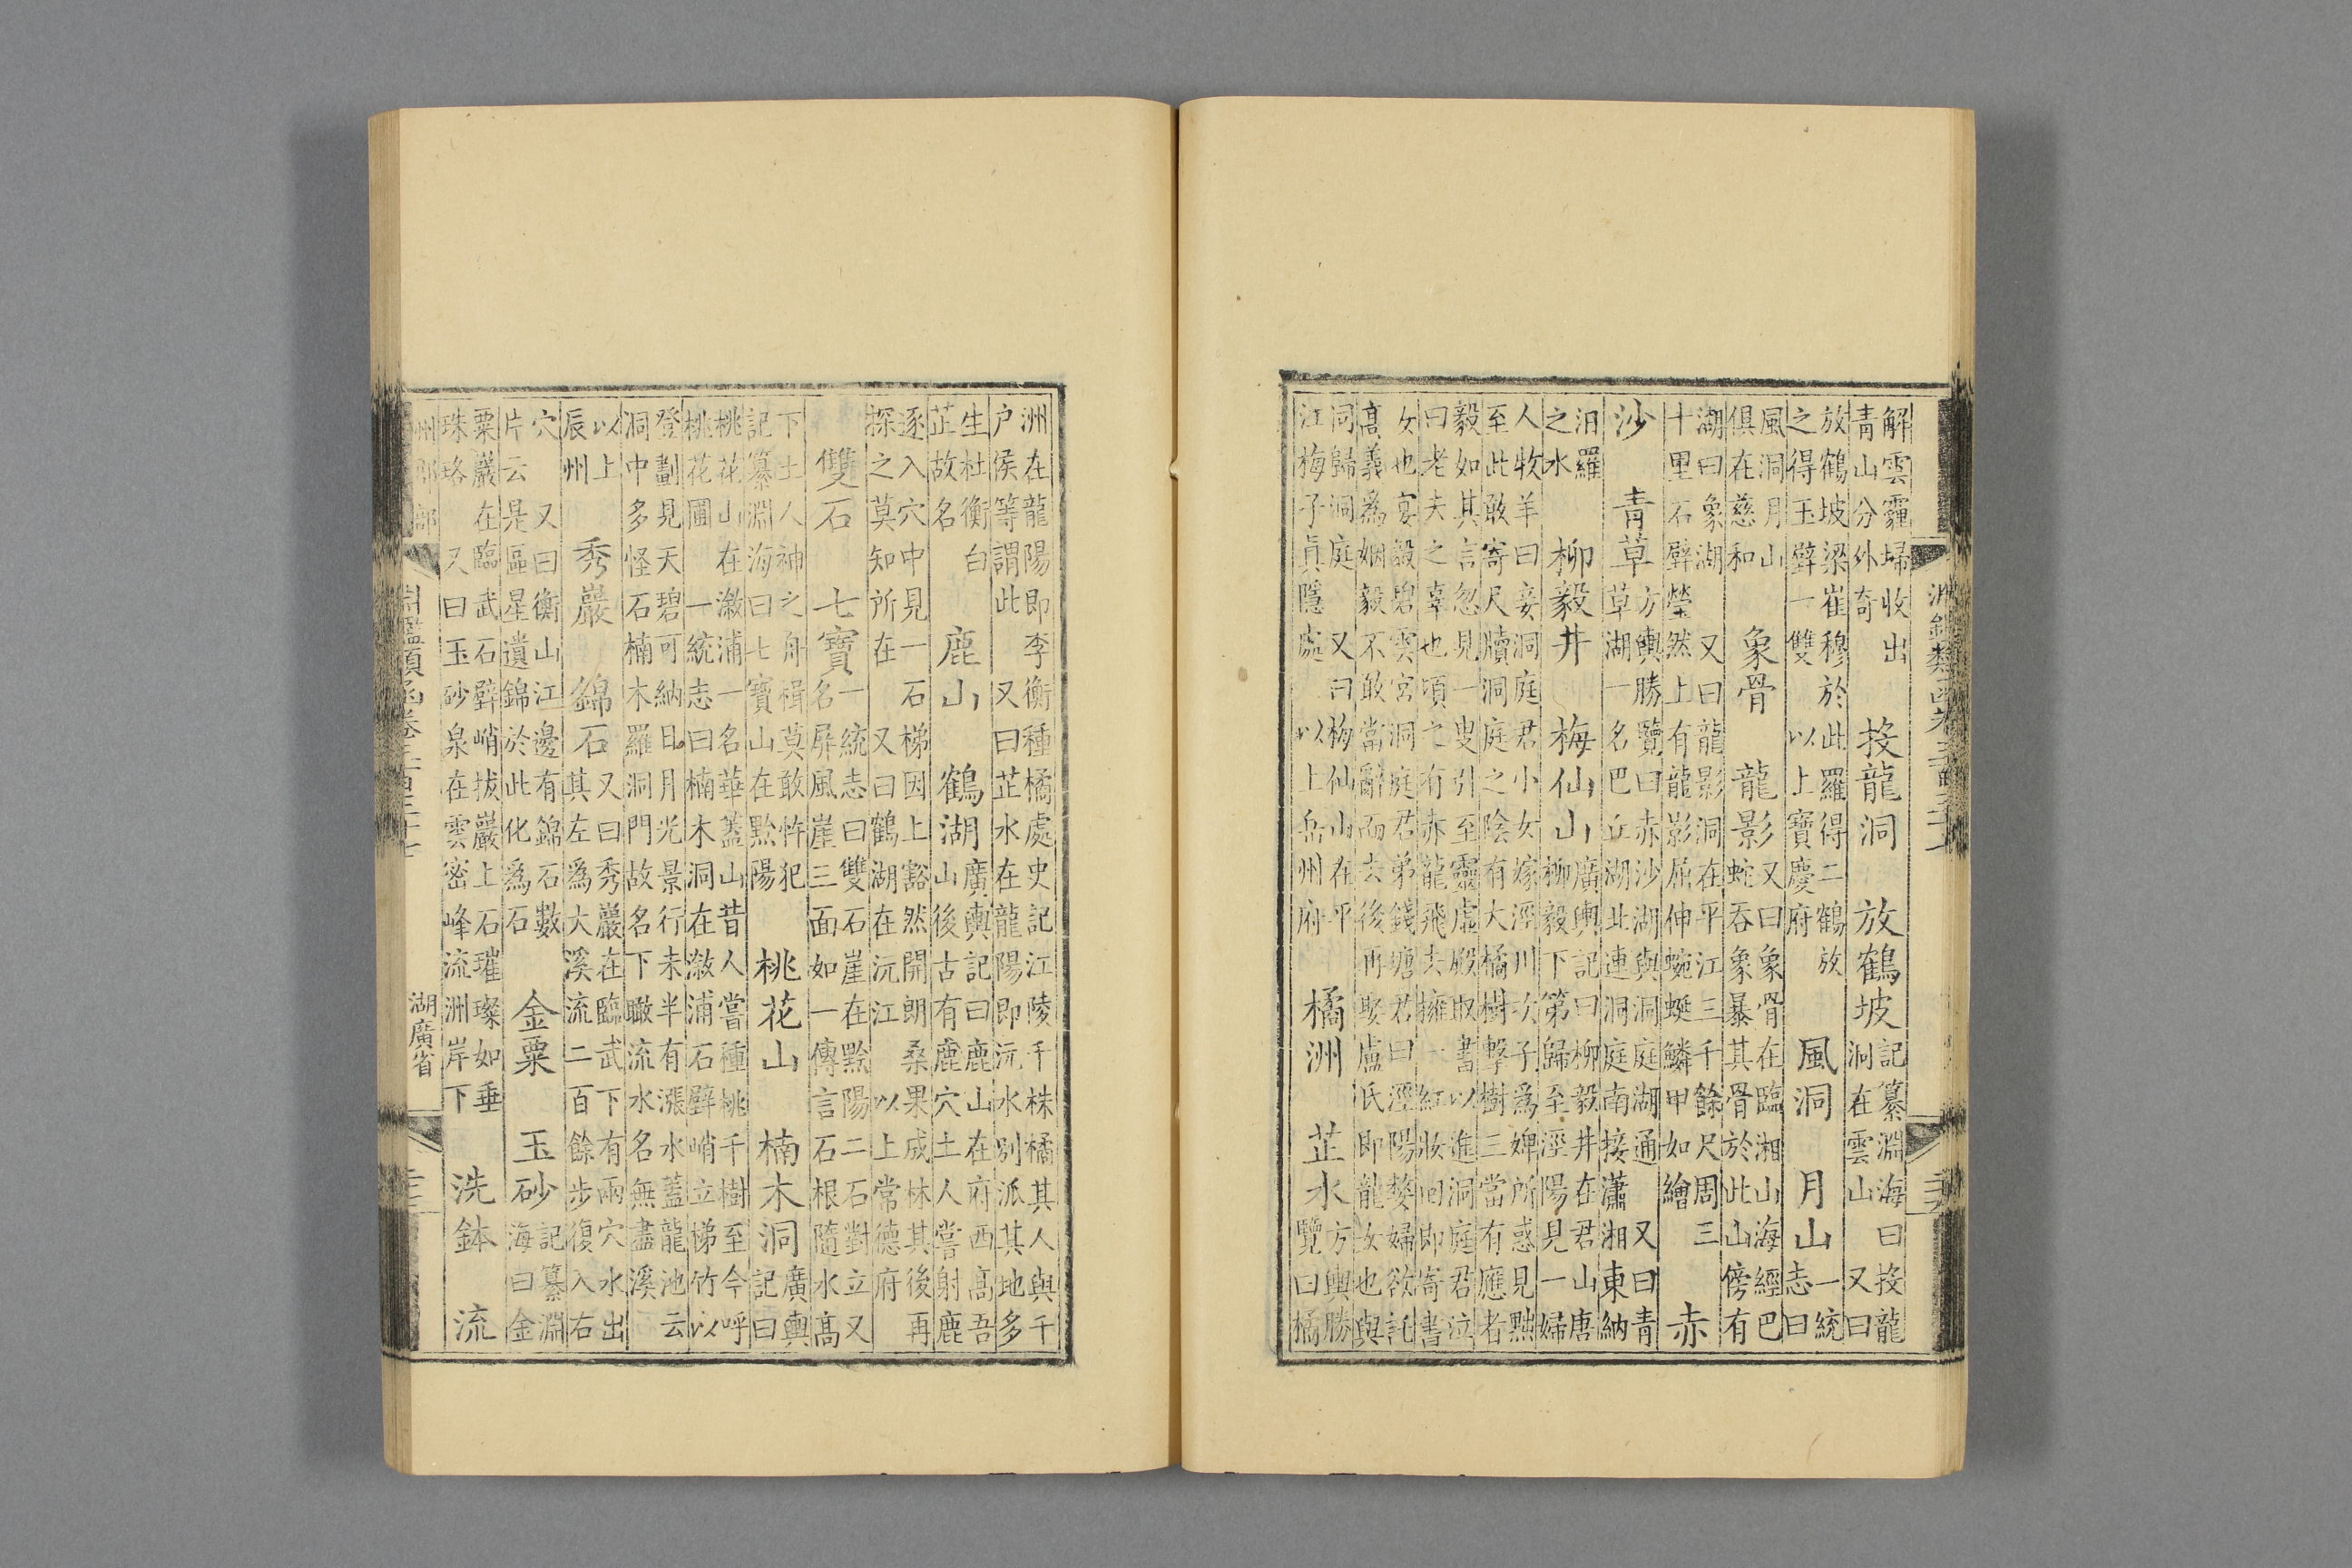 淵鑑類函卷三百三十七
解雲霾掃收出
青山分外奇
投龍洞 放鶴坡
記纂淵海曰投龍
洞在雲山 又曰
放鶴坡梁崔穆於此羅得二鶴放
之得玉璧一雙 以上寶慶府
風洞 月山
一統
志曰
風洞月山
俱在慈和
象骨 龍影
又曰象骨在臨湘山海經巴
蛇吞象暴其骨於此山傍有
湖曰象湖 又曰龍影洞在平江三千餘尺周三
十里石壁瑩然上有龍影屈伸蜿蜒鱗甲如繪
赤
沙 青草
方輿勝覽曰赤沙湖與洞庭湖通 又曰青
草湖一名巴丘湖北連洞庭南接瀟湘東納
汨羅
之水
柳毅井 梅仙山
廣輿記曰柳毅井在君山唐
柳毅下第歸至涇陽見一婦
人牧羊曰妾洞庭君小女嫁涇川次子爲婢所惑見黜
至此敢寄尺牘洞庭之陰有大橘樹擊樹三當有應者
毅如其言忽見一叟引至靈虛殿取書以進洞庭君泣
曰老夫之辜也頃之有赤龍飛去擁一紅妝回即寄書
女也宴毅碧雲宮洞庭君弟錢塘君曰涇陽嫠婦欲託
髙義爲姻毅不敢當辭而去後再娶盧氏即龍女也與
同歸洞庭 又曰梅仙山在平
江梅子眞隱處 以上岳州府
橘洲 芷水
方輿勝
覽曰橘
洲在龍陽即李衡種橘處史記江陵千株橘其人與千
户侯等謂此 又曰芷水在龍陽即沅水別派其地多
生杜衡白
芷故名
鹿山 鶴湖
廣輿記曰鹿山在府西髙吾
山後古有鹿穴土人嘗射鹿
逐入穴中見一石梯因上豁然開朗桑果成林其後再
探之莫知所在 又曰鶴湖在沅江 以上常德府
雙石 七寶
一統志曰雙石崖在黔陽二石對立又
名屏風崖三面如一傳言石根隨水髙
下土人神之舟楫莫敢忤犯
記纂淵海曰七寶山在黔陽
桃花山 楠木洞
廣輿
記曰
桃花山在漵浦一名華蓋山昔人嘗種桃千樹至今呼
桃花圃 一統志曰楠木洞在漵浦石壁峭立梯竹以
登劃見天碧可納日月光景行未半有漲水蓋龍池云
洞中多怪石楠木羅洞門故名下瞰流水名無盡溪
以上
辰州
秀巖 錦石
又曰秀巖在臨武下有兩穴水出
其左爲大溪流二百餘步復入右
穴 又曰衡山江邊有錦石數
片云是區星遺錦於此化爲石
金粟 玉砂
記纂淵
海曰金
粟巖在臨武石壁峭拔巖上石璀璨如垂
珠珞 又曰玉砂泉在雲密峰流洲岸下
洗鉢 流
州郡部
淵鑑類函卷三百三十七
湖廣省